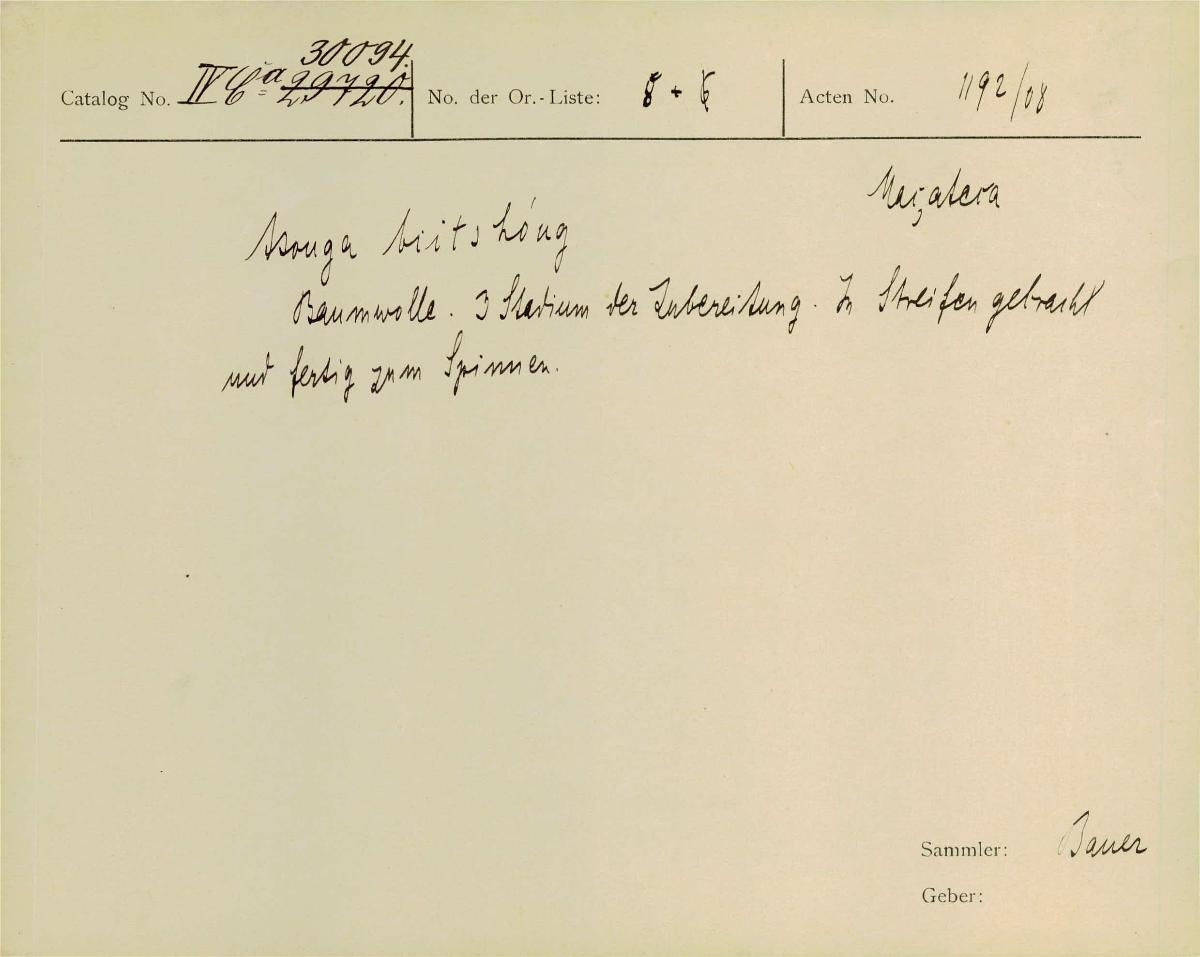 30094.
Catalog No. IV Ca 29720. No. der Or.-Liste: Acten No. 1192/08
Mazateca
biitshóng
Baumwolle. 3 Stadium der Zubereitung. In Streifen gebracht
und fertig zum Spinnen.
Sammler: Bauer
Geber: